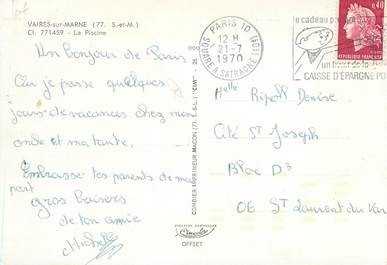 VAIRES-sur-MARNE (77. S.-et-M.)
Cl. 771459 - La Piscine
Un bonjour de Paris
où je passe quelques
jours de vacances chez mon
oncle et ma tante.
Embrasse tes parents de ma
part
gros baisers
de ton amie
Michèle
COMBIER IMPRIMEUR MACON
OFFSET
PARIS 10
12 H
21-7
1970
le cadeau
un livret de
CAISSE D'ÉPARGNE PO
0,40
Melle Ripoll Denise
Cité St Joseph
Bloc D3
06 St Laurent du Var